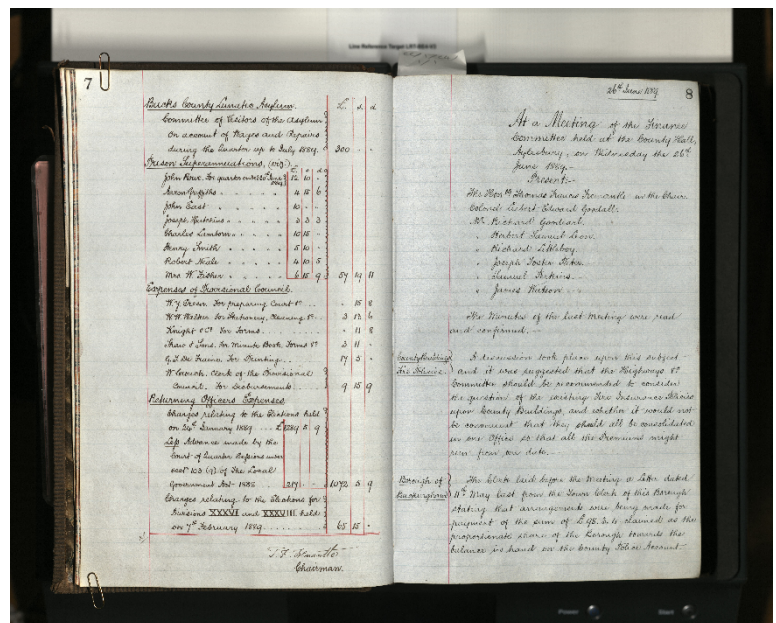 7
Bucks County Lunatic Asylum. £. s. d
Committee of Visitors of the Asylum
on account of Wages and Repairs
during the Quarter up to July 1889. 300 -
Prison Superannuations, (viz)
£. s d
John Rowe. For quarter ended 1889. 12 10 -
Aaron Griffiths " " " 4 15 6
John East " " " 10 -
Joseph Hutchins " " " 3 3 3
Charles Lamborn " " " 10 15 -
Henry Smith " " " 5 10 -
Robert Neale " " " 4 10 5
Mrs W. Fisher " " " 6 15 9 57 19 11
Expenses of Provisional Council.
For preparing Court &c - 15 8
W. Walker for Stationery, Cleaning &c 3 13 6
Knight & Co. For Forms - 11 8
Shaw & Sons. for Minute Book Forms &c 3 11 -
G. T. De Fraine For Printing 17 5 -
W Crouch, Clerk of the Provisional
Council. For Disbursements 9 15 9
Returning Officers Expenses
Charges relating to the Elections held
on 24th January 1889 £1289 5 9
Less Advance made by the
Court of Quarter Sessions under
sect 103 (9) of the Local
Government Act - 1888 217 - - 1072 5 9
Charges relating to the Elections for
Divisions XXXVI and XXXVIII held
on 7th February 1889 65 15 -
T. F. Fremantle
Chairman.
26th June 1889
8
At a Meeting of the Finance
Committee held at the County Hall,
Aylesbury, on Wednesday the 26th
June 1889.-
Present.-
The Honble Thomas Francis Fremantle in the Chair
Colonel Liebert Edward Goodall.
Mr Richard
" Herbert Samuel Leon.
" Richard
" Joseph Foster
" Samuel Perkins.
" James Watson.
The Minutes of the last Meeting were read
and confirmed.-
County Buildings
Fire Policies.
A discussion took place upon this subject
and it was suggested that the Highways &c
Committee should be recommended to consider
the question of the existing Fire Insurance Policies
upon County Buildings, and whether it would not
be convenient that they should all be consolidated
in one Office so that all the Premiums might
run from one date.-
Borough of
Buckingham
The Clerk laid before the Meeting a Letter dated
11th May last from the Town Clerk of this Borough
stating that arrangements were being made for
payment of the sum of £98.3.4 claimed as the
proportionate share of the Borough towards the
balance in hand on the County Police Account-
Power
Start